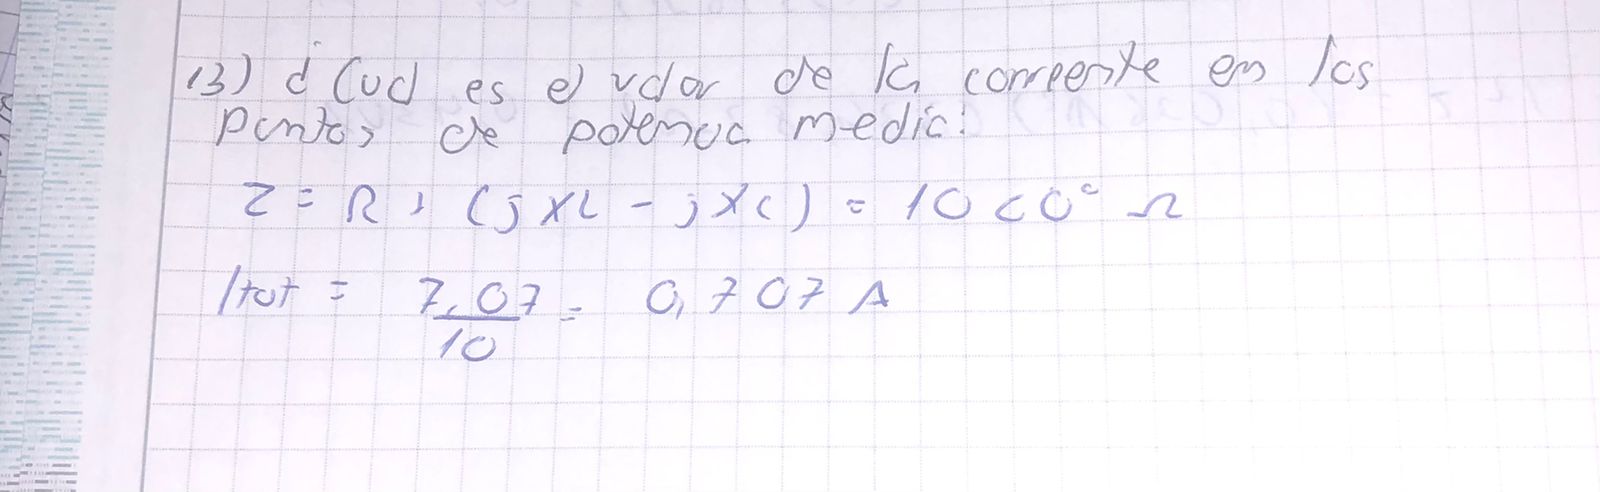 13) ¿Cual es el valor de la corriente en los
puntos de potencia media:
Z = R + (jXL - jXC) = 10 <0° Ω
Itot = 7,07 / 10 = 0,707 A